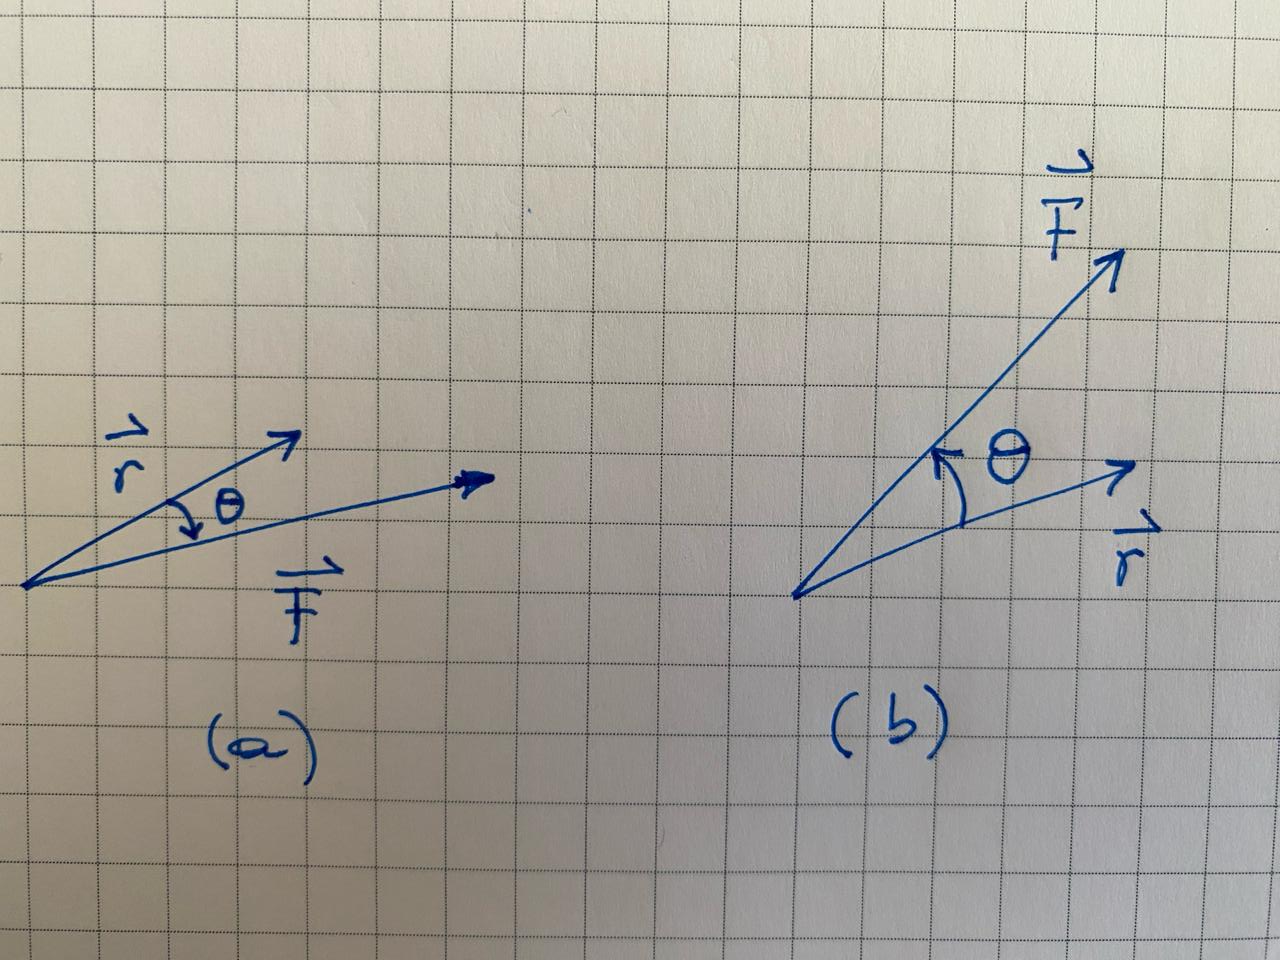 r⃗
θ
F⃗
(a)
F⃗
θ
r⃗
(b)